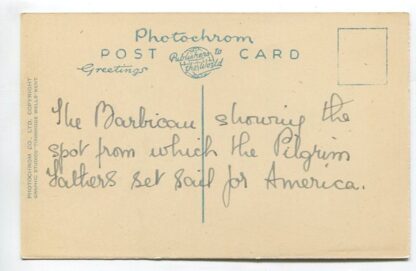 Photochrom
POST CARD
Publishers to
the World
Greetings
The Barbican showing the
spot from which the Pilgrim
Fathers set sail for America.
PHOTOCHROM CO. LTD. COPYRIGHT
GRAPHIC STUDIOS TUNBRIDGE WELLS KENT